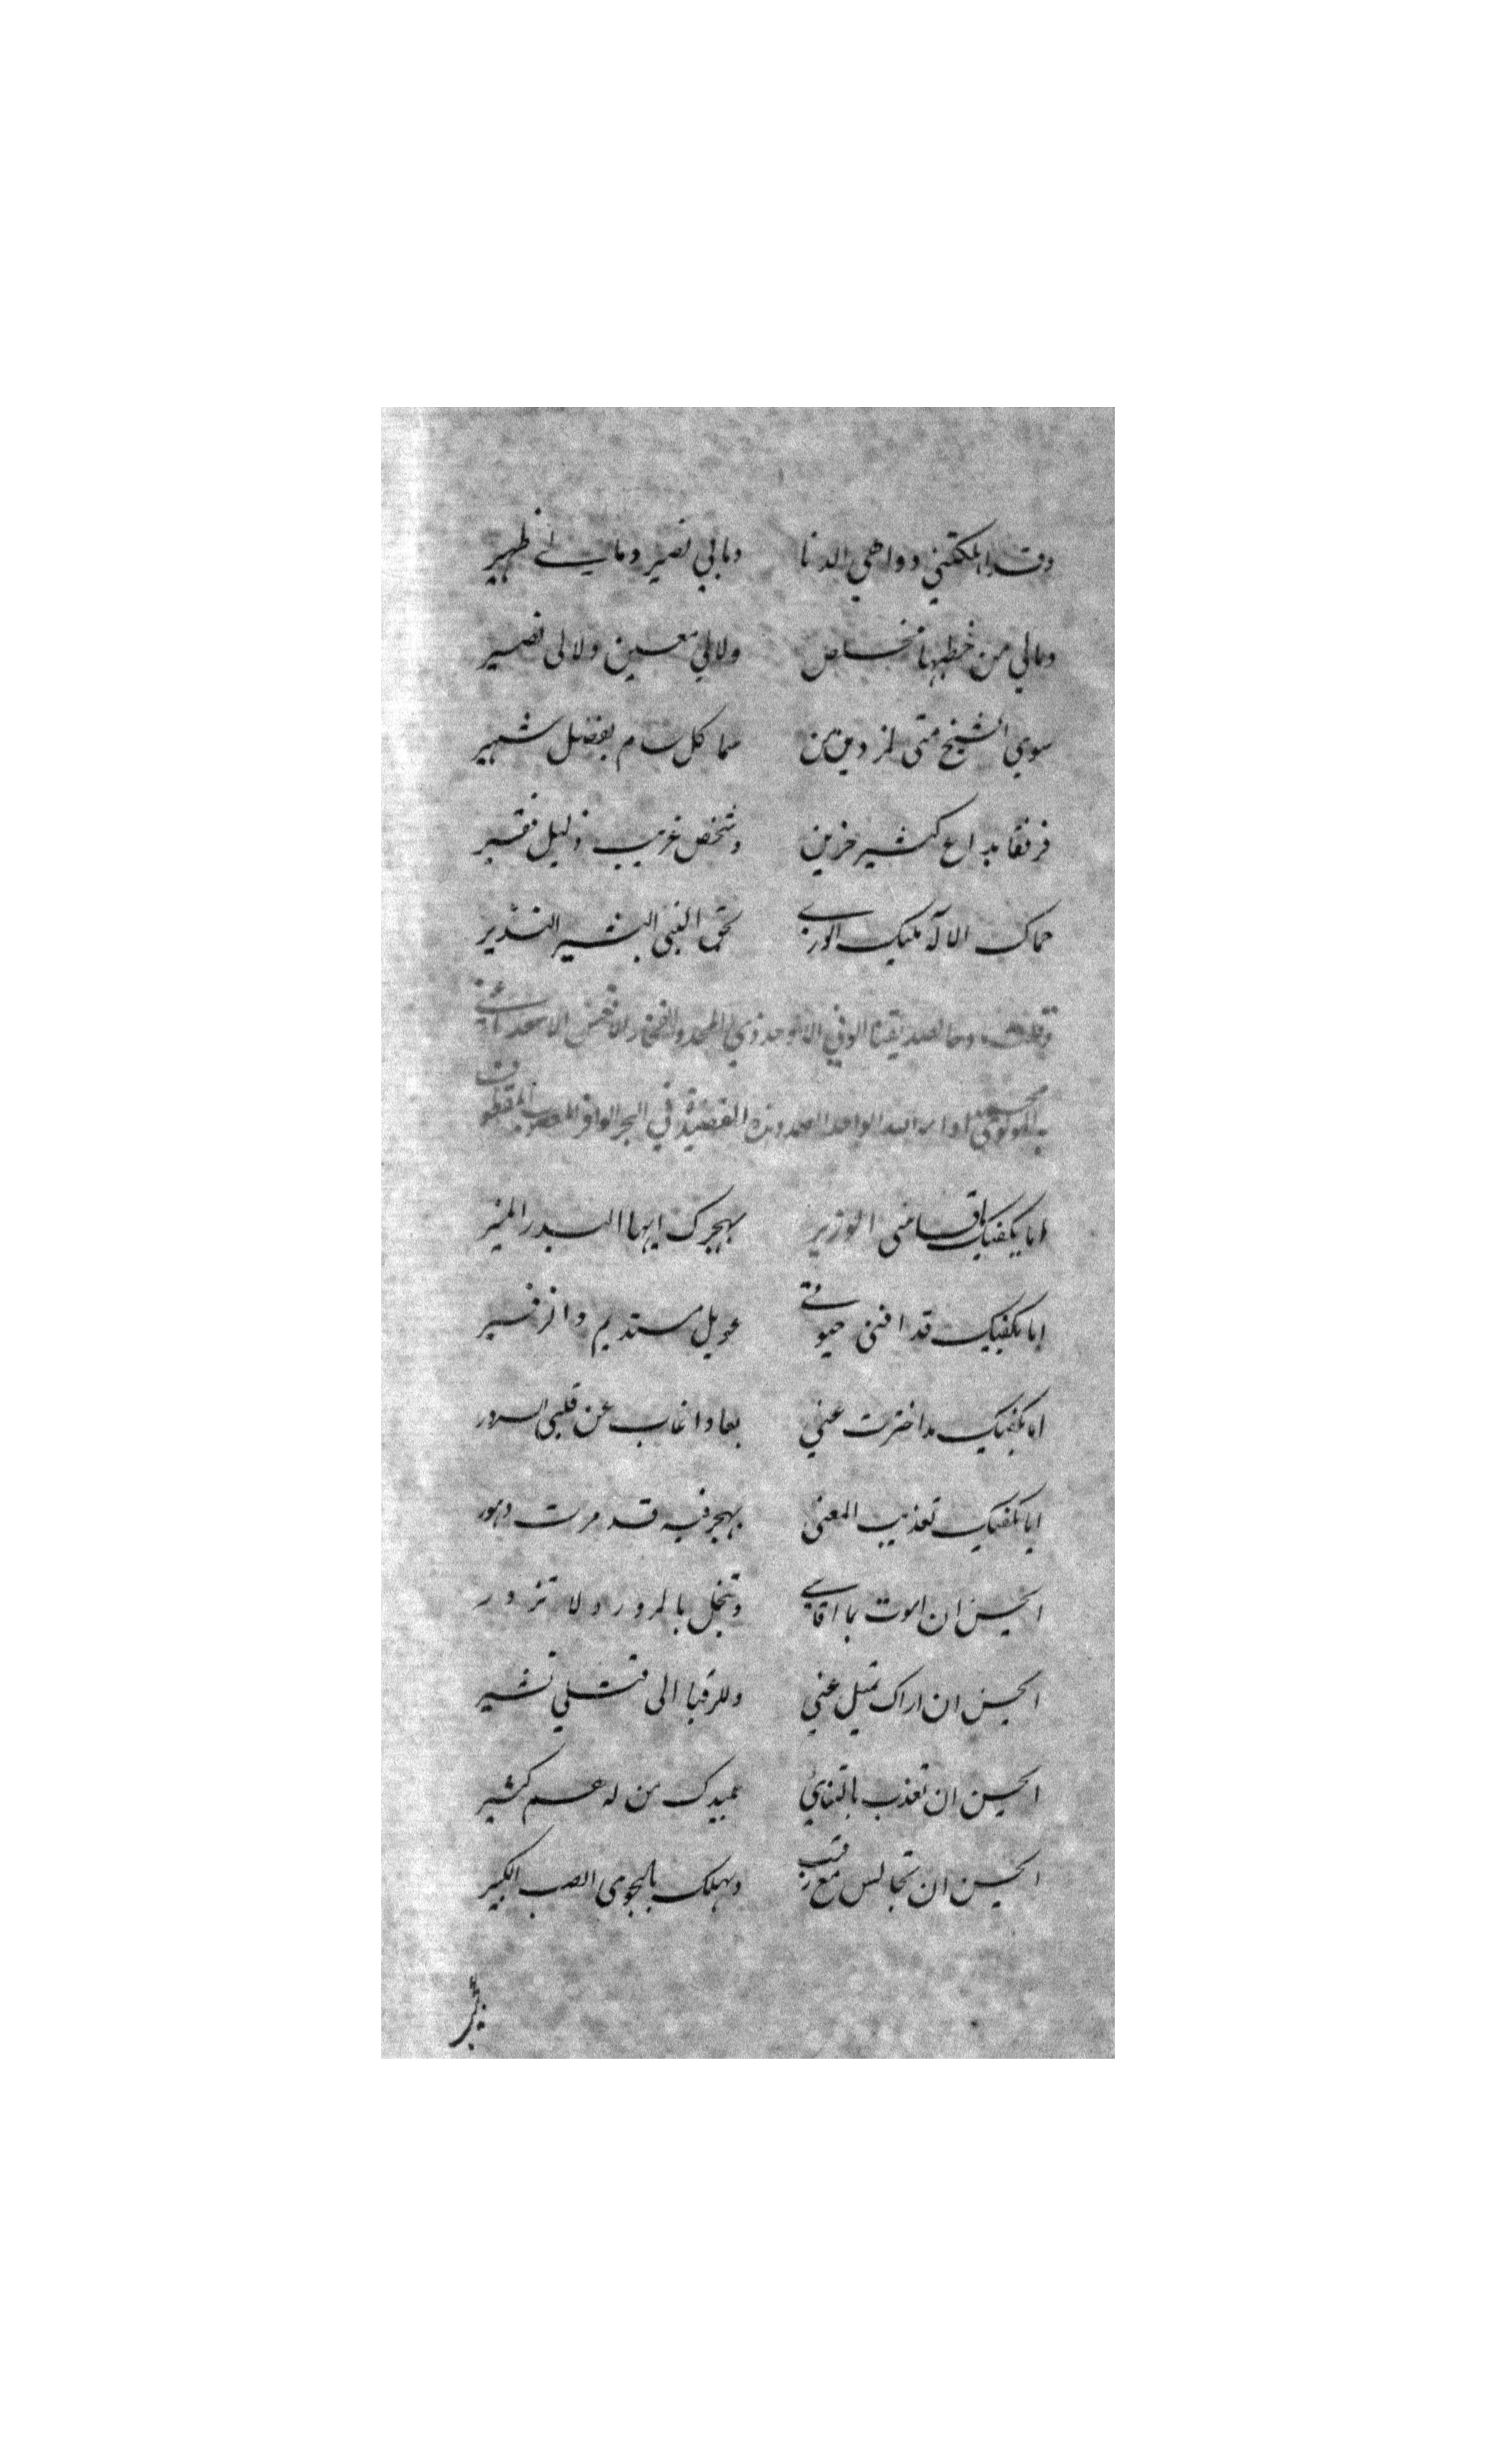 وقد اهلكتني دواهي الدنا ومالي نصير ومالي ظهير
ومالي من خطبها مخلص ولالي معين ولالي نصير
سوى الشيخ متى من سما كل سام بفضل شهير
فرفقا بداع كثير حزين وشخص غريب ذليل فقير
حماك الاله مليك الورى بحق النبي البشير النذير
وقلت مدحا لصديقنا الوفي الاوحد ذي المجد والفخار الافخم الاسعد اعني
به المولوي محمد الواحد الصمد وهذه القصيدة في البحر الوافر المقطوف
اما يكفيك ياقاسي الوزير بهجرك ايها البدر المنير
اما يكفيك قد افنى حيوتي عويل مستديم وا زفير
اما يكفيك مذ اخترت عني بعادا غاب عن قلبي السرور
اما يكفيك تعذيب المعنى بهجر فيه قد مرت دهور
ايحسن ان اموت بما اقاسي وتبخل بالمرور ولا تزور
ايحسن ان اراك تميل عني وللرقبا الى قتلي تشير
ايحسن ان تعذب بالتنائي عميدك من له غم كثير
ايحسن ان تجالس مع رقيب ويهلك بالجوى الصب الكبير